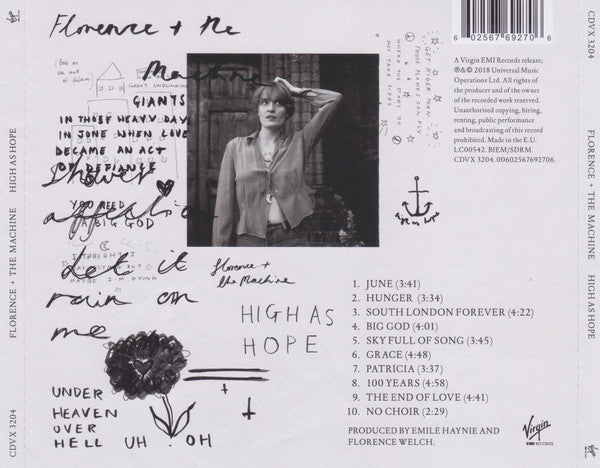 CDVX 3204 FLORENCE + THE MACHINE HIGH AS HOPE
Virgin
Florence + the
Machine
GREAT UNBLINKING
GIANTS
IN THOSE HEAVY DAYS
IN JUNE WHEN LOVE
BECAME AN ACT
OF DEFIANCE
Shower
affection
YOU NEED
A BIG GOD
Let it
rain on
me
I THOUGHT I
MAYBE I'M DYING
UNDER
HEAVEN
OVER
HELL UH OH
Florence +
the Machine
HIGH AS
HOPE
GET HIGHER THAN
THOSE PLANES CAN FLY
WHERE THE STARS DO
NOT TAKE SIDES
6 02567 69270 6
A Virgin EMI Records release;
℗&© 2018 Universal Music
Operations Ltd. All rights of
the producer and of the owner
of the recorded work reserved.
Unauthorised copying, hiring,
renting, public performance
and broadcasting of this record
prohibited. Made in the E.U.
LC00542. BIEM/SDRM.
CDVX 3204. 00602567692706.
1. JUNE (3:41)
2. HUNGER (3:34)
3. SOUTH LONDON FOREVER (4:22)
4. BIG GOD (4:01)
5. SKY FULL OF SONG (3:45)
6. GRACE (4:48)
7. PATRICIA (3:37)
8. 100 YEARS (4:58)
9. THE END OF LOVE (4:41)
10. NO CHOIR (2:29)
PRODUCED BY EMILE HAYNIE AND
FLORENCE WELCH.
Virgin
EMI RECORDS
CDVX 3204 FLORENCE + THE MACHINE HIGH AS HOPE
Virgin